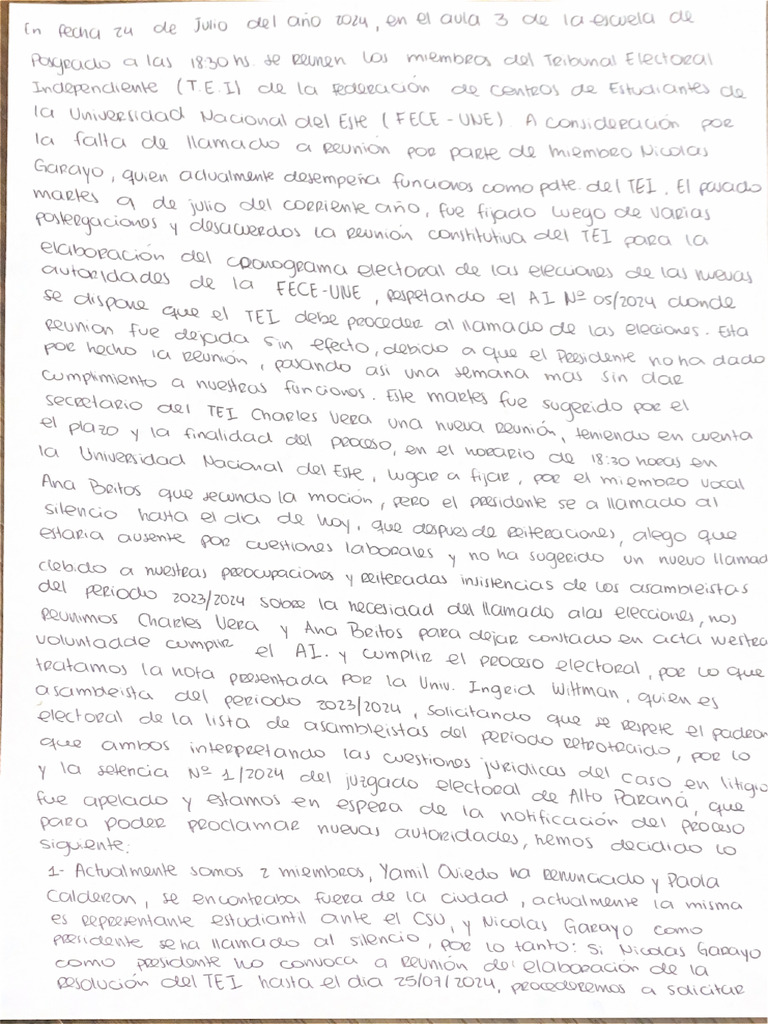 En fecha 24 de Julio del año 2024, en el aula 3 de la escuela de
Posgrado a las 18:30 hs. se reunen los miembros del Tribunal Electoral
Independiente (T.E.I) de la Federación de Centros de Estudiantes de
la Universidad Nacional del Este (FECE-UNE). A consideración por
la falta de llamado a reunión por parte de miembro Nicolas
Garayo, quien actualmente desempeña funciones como pdte. del TEI. El pasado
martes 9 de julio del corriente año, fue fijado luego de varias
postergaciones y desacuerdos la reunión constitutiva del TEI para la
elaboración del cronograma electoral de las elecciones de las nuevas
autoridades de la FECE-UNE, respetando el AI Nº 05/2024 donde
se dispone que el TEI debe proceder al llamado de las elecciones. Esta
reunion fue dejada sin efecto, debido a que el Presidente no ha dado
por hecho la reunión, pasando asi una semana mas sin dar
cumplimiento a nuestras funciones. Este martes fue sugerido por el
secretario del TEI Charles Vera una nueva reunión, teniendo en cuenta
el plazo y la finalidad del proceso, en el horario de 18:30 horas en
la Universidad Nacional del Este, lugar a fijar, por el miembro vocal
Ana Britos que secundo la moción, pero el presidente se a llamado al
silencio hasta el dia de hoy, que despues de reiteraciones, alego que
estaria ausente por cuestiones laborales y no ha sugerido un nuevo llamad
debido a nuestras preocupaciones y reiteradas insistencias de los asambleistas
del periodo 2023/2024 sobre la necesidad del llamado a las elecciones, nos
reunimos Charles Vera y Ana Britos para dejar constado en acta nuestra
voluntad de cumplir el AI. y cumplir el proceso electoral, por lo que
tratamos la nota presentada por la Univ. Ingrid Wittman, quien es
asambleista del periodo 2023/2024, solicitando que se respete el padron
electoral de la lista de asambleistas del periodo retrotraido, por lo
que ambos interpretando las cuestiones juridicas del caso en litigio
y la setencia Nº 1/2024 del juzgado electoral de Alto Paraná, que
fue apelado y estamos en espera de la notificación del proceso
para poder proclamar nuevas autoridades, hemos decidido lo
siguiente:
1- Actualmente somos 2 miembros, Yamil Oviedo ha renunciado y Paola
Calderon, se encontraba fuera de la ciudad, actualmente la misma
es representante estudiantil ante el CSU, y Nicolas Garayo como
presidente se ha llamado al silencio, por lo tanto: Si Nicolas Garayo
como presidente no convoca a reunión de elaboración de la
resolución del TEI hasta el dia 25/07/2024, procederemos a solicitar